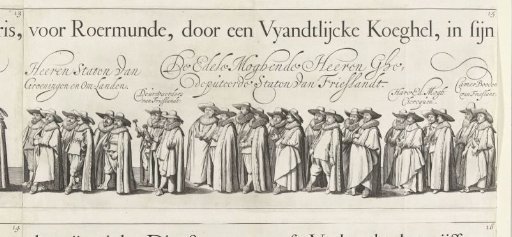 13
15
ris, voor Roermunde, door een Vyandtlijcke Koeghel, in sijn
Heeren Staten van
Groeningen en Om Landen.
Deurwaerders
van Frieslandt.
De Edele Moghende Heeren Ghe,
deputeerde Staten van Frieslandt.
Hare Ed. Mogh.
Camer Booden
van Frieslant.
14
16